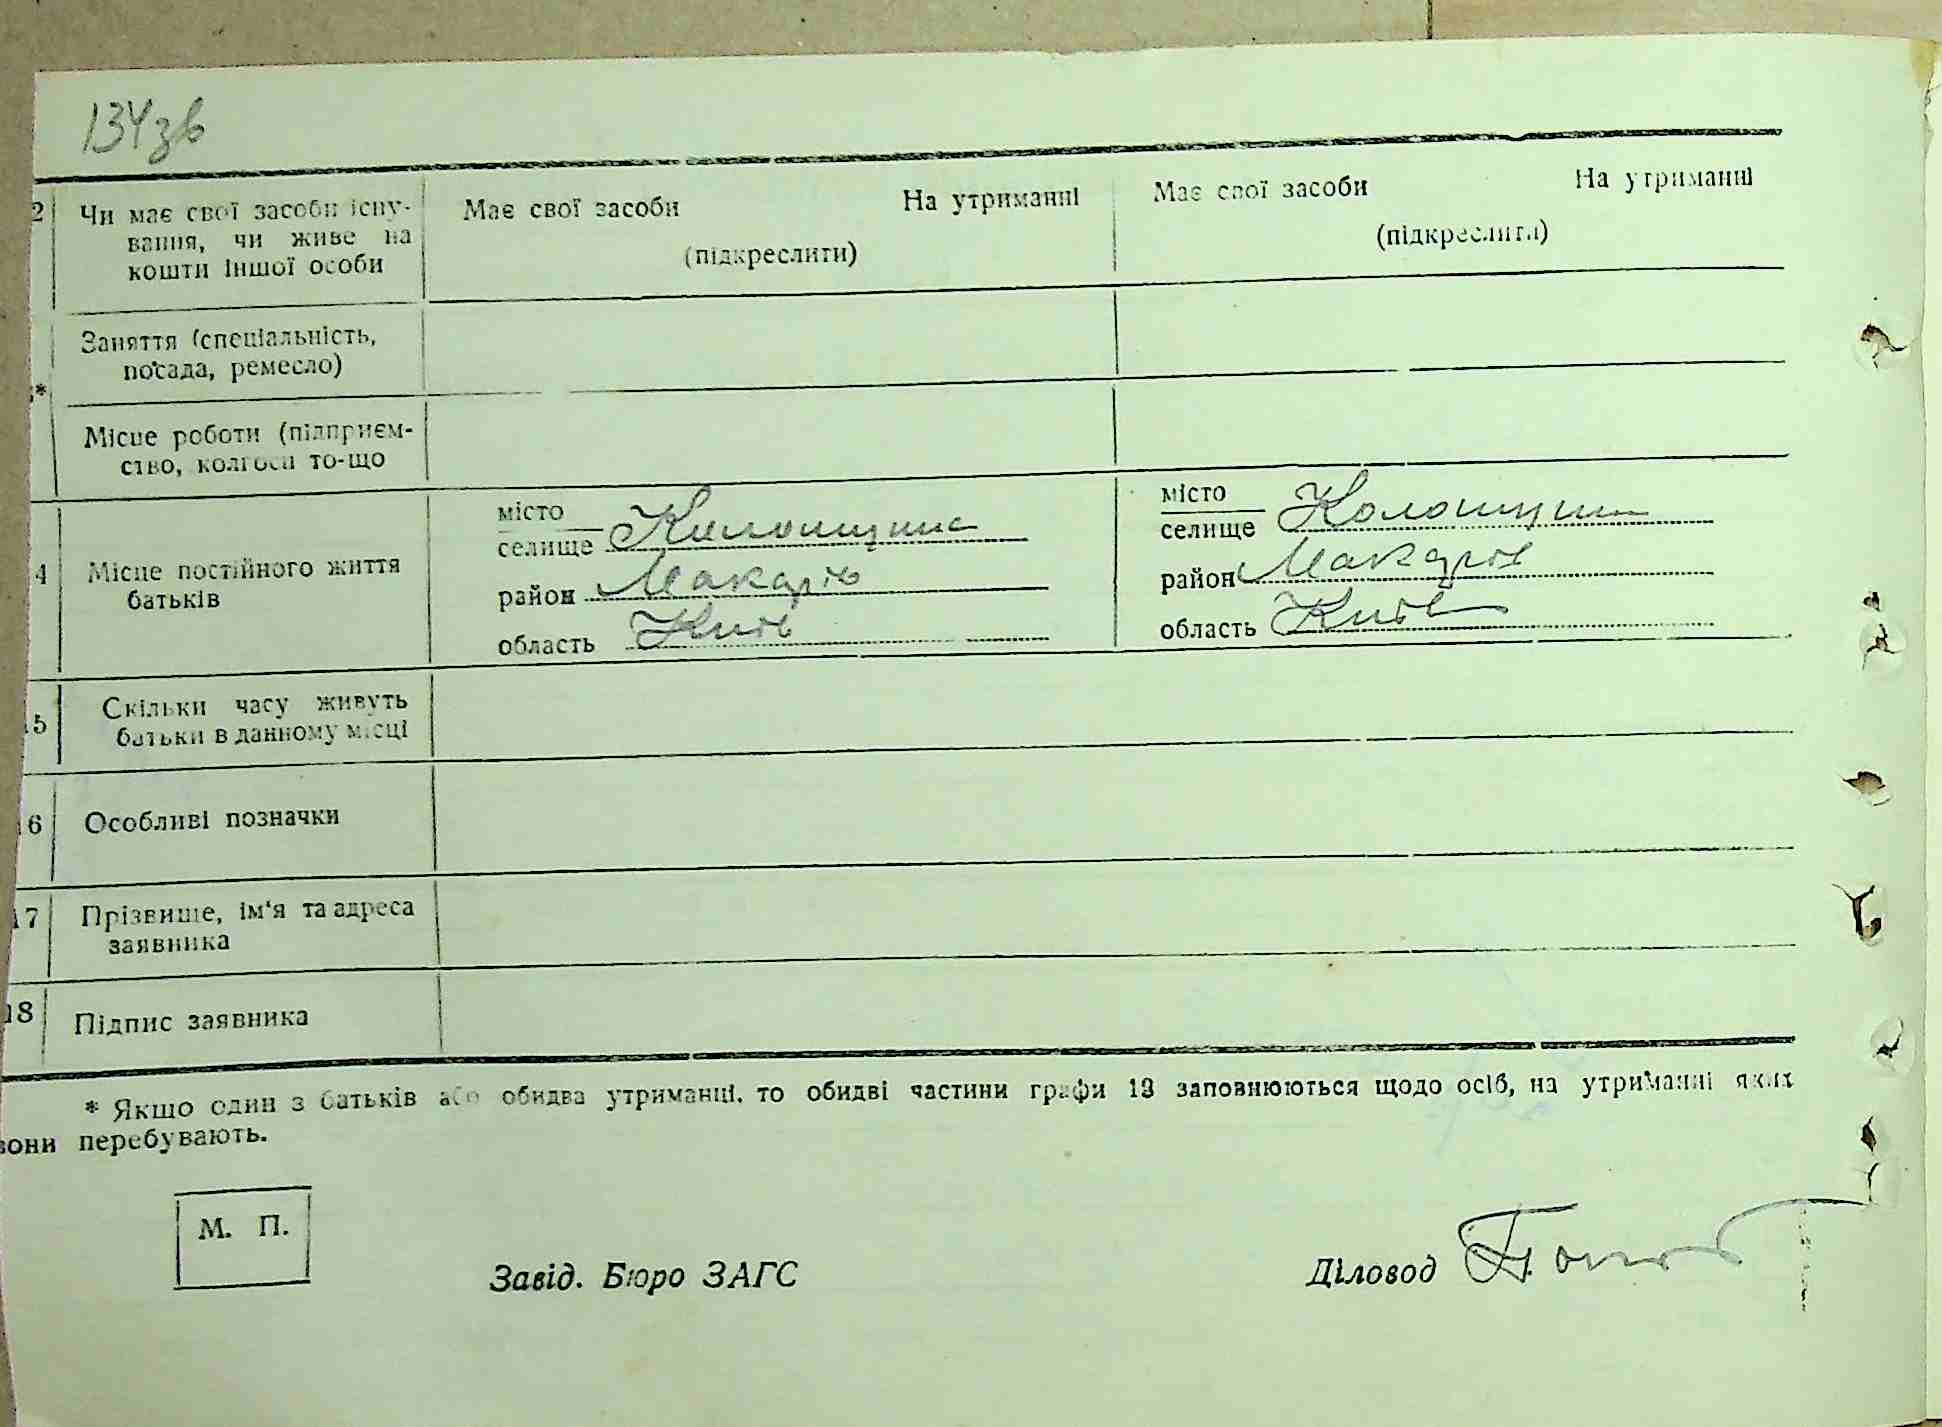 134зв
2 Чи має свої засоби існу-
вання, чи живе на
кошти іншої особи
Має свої засоби На утриманні
(підкреслити)
Має свої засоби На утриманні
(підкреслити)
* Заняття (спеціальність,
посада, ремесло)
Місце роботи (підприєм-
ство, колгосп то-що
4 Місце постійного життя
батьків
місто
селище Колонщина
район Макарів
область Київ
місто
селище Колонщина
район Макарів
область Київ
15 Скільки часу живуть
батьки в данному місці
16 Особливі позначки
17 Прізвище, ім'я та адреса
заявника
18 Підпис заявника
* Якщо один з батьків або обидва утриманці, то обидві частини графи 13 заповнюються щодо осіб, на утриманні яких
вони перебувають.
М. П.
Завід. Бюро ЗАГС
Діловод